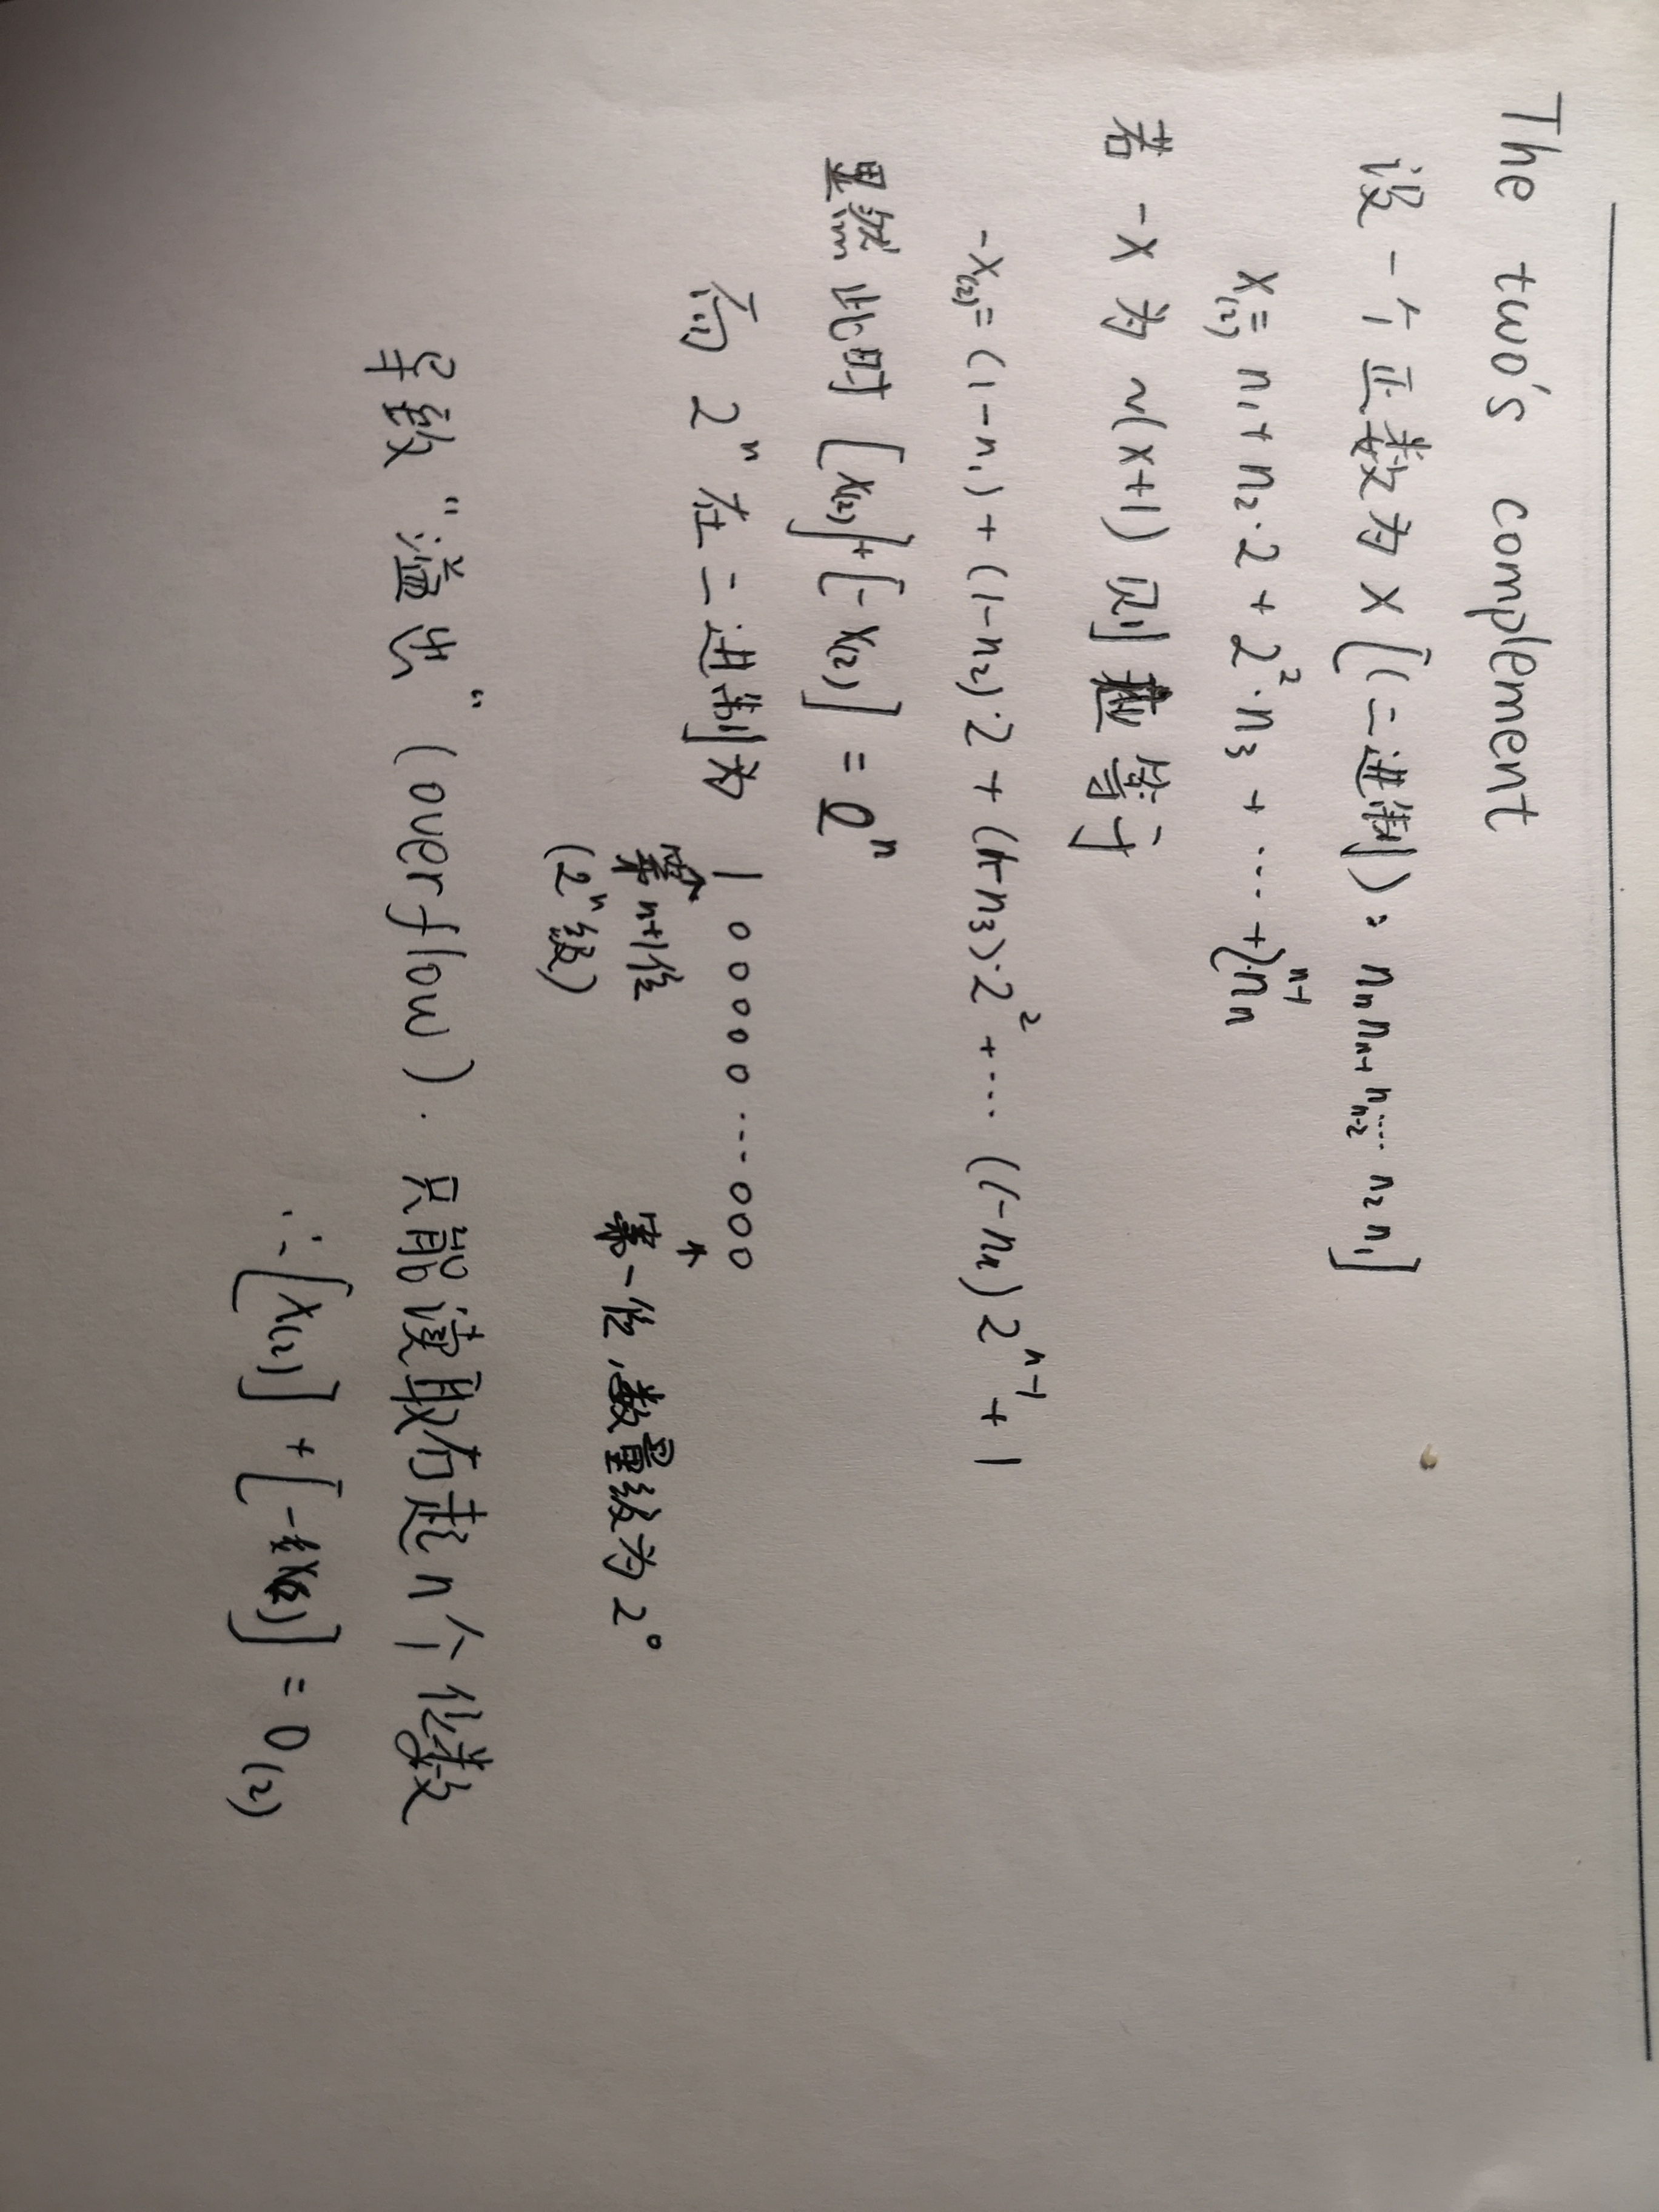 The two's complement
设一个正数为 X [(二进制): nₙ nₙ₋₁ nₙ₋₂ …… n₂ n₁]
X₍₂₎= n₁+ n₂·2 + 2²·n₃ + …… +2ⁿ⁻¹·nₙ
若 -X 为 ~(X+1) 则 等于
-X₍₂₎= (1-n₁) + (1-n₂)·2 + (1-n₃)·2² + … (1-nₙ) 2ⁿ⁻¹ + 1
显然 此时 [X₍₂₎]+[-X₍₂₎] = 2ⁿ
而 2ⁿ 在二进制为 1 0 0 0 0 0 … 0 0 0
↑ 第n+1位 (2ⁿ级)
↑ 第一位,数量级为2⁰
导致 “溢出“ (overflow). 只能读取右起n个位数
∴ [X₍₂₎] + [-X₍₂₎] = 0₍₂₎